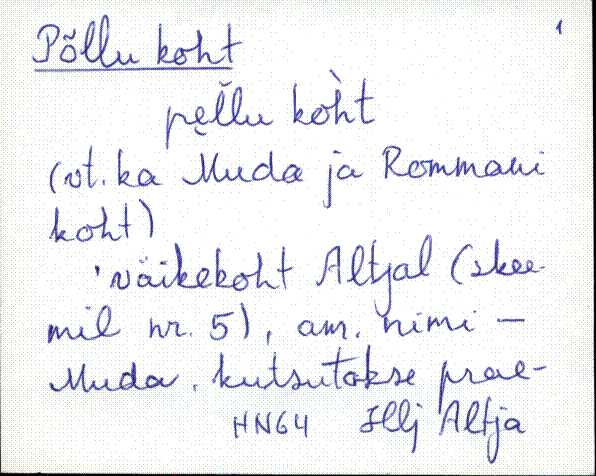 1
Põllu koht
pęl̆lu kòht
(vt. ka Muda ja Rommani
koht)
'väikekoht Altjal (skee-
mil nr. 5), am. nimi –
Muda, kutsutakse prae-
HN64 Hlj Altja